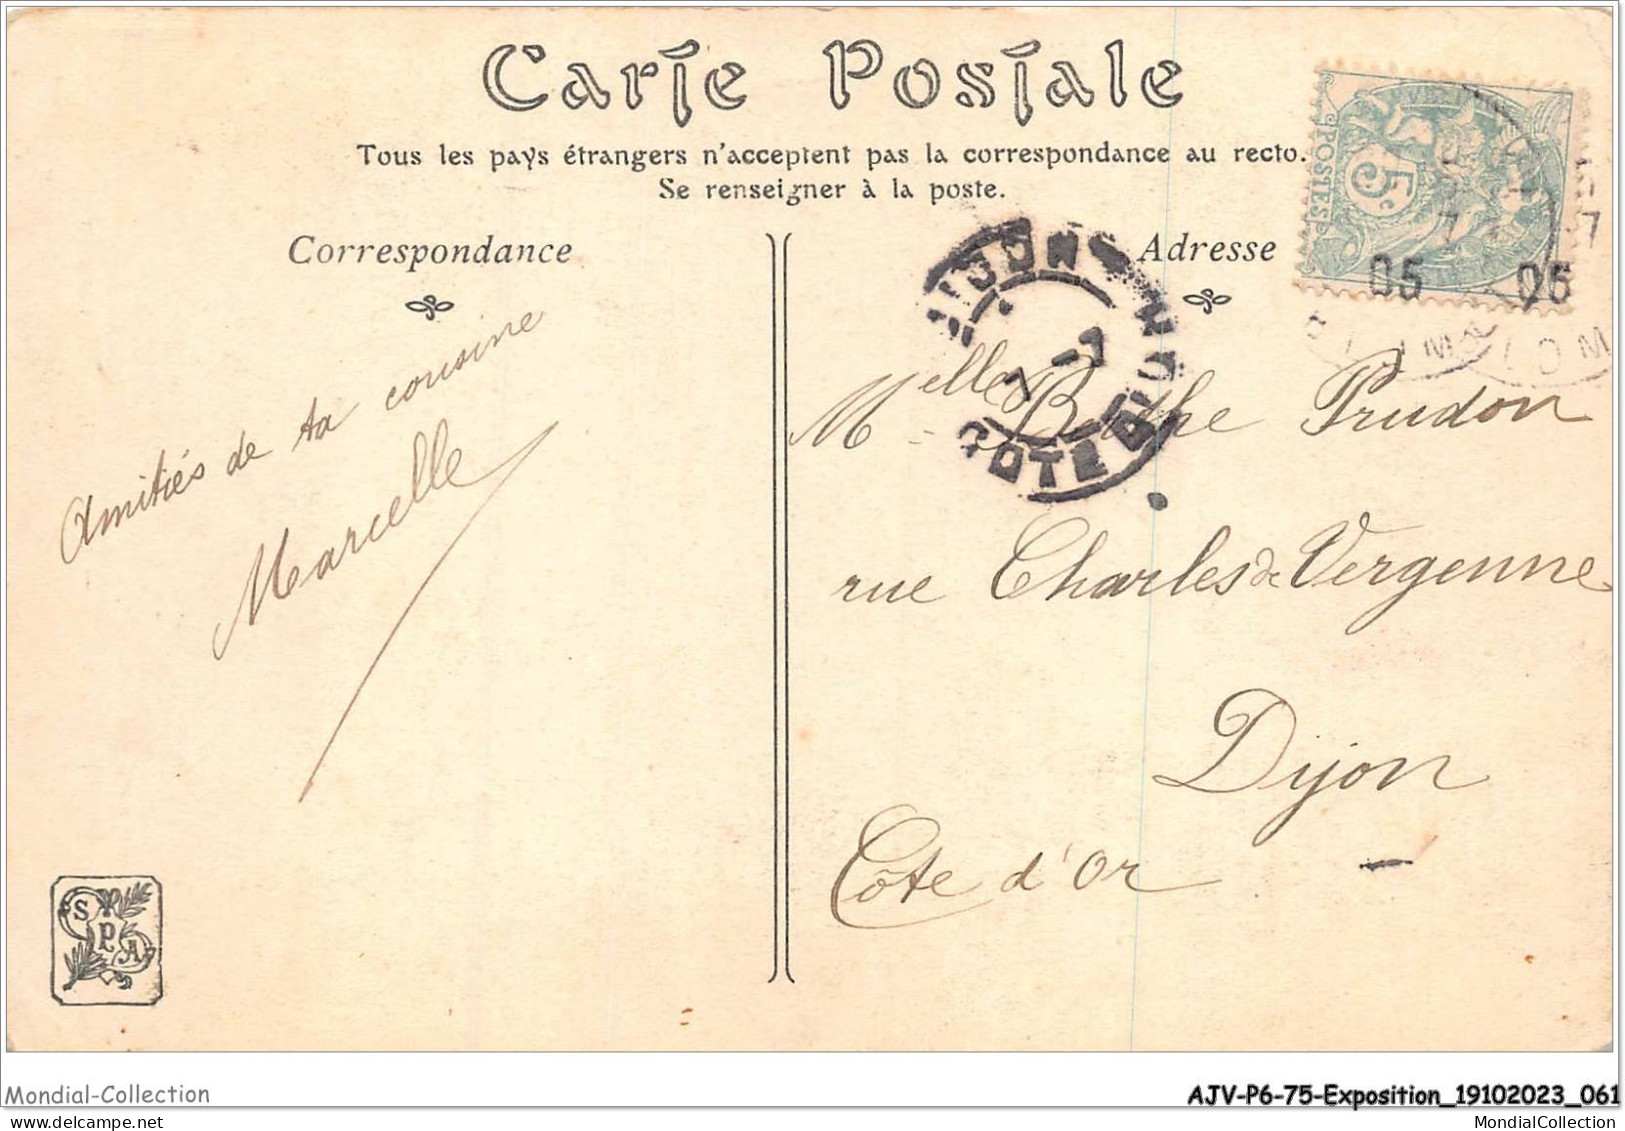 Carte Postale
Tous les pays étrangers n'acceptent pas la correspondance au recto.
Se renseigner à la poste.
Correspondance
Adresse
POSTES
5c
05 05
DIJON
7 -7
COTE D'OR
Amitiés de ta cousine
Marcelle
Melle Berthe Prudon
rue Charles de Vergenne
Dijon
Côte d'Or
S P A
Mondial-Collection
AJV-P6-75-Exposition_19102023_061
MondialCollection